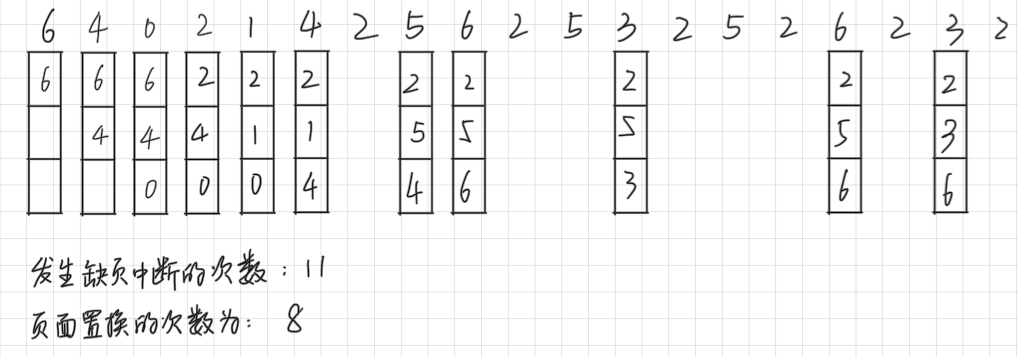 6 4 0 2 1 4 2 5 6 2 5 3 2 5 2 6 2 3 2
6 6 6 2 2 2 2 2 2 2 2
4 4 4 1 1 5 5 5 5 3
0 0 0 4 4 6 3 6 6
发生缺页中断的次数：11
页面置换的次数为：8